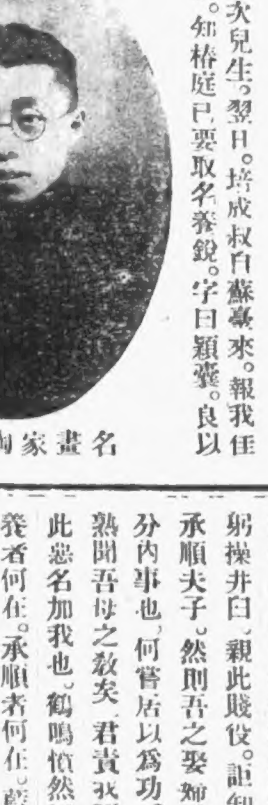 次兒生。翌日。培成叔自蘇臺來。報我佳
。知椿庭已要取名養銳。字曰穎囊。良以
名畫家陶
躬操井臼、親此賤役。詎知
承順夫子。然則吾之娶婦
分內事也、何嘗居以爲功
熟聞吾母之敎矣、君責我
此惡名加我也。鶴鳴憤然
養者何在。承順者何在。